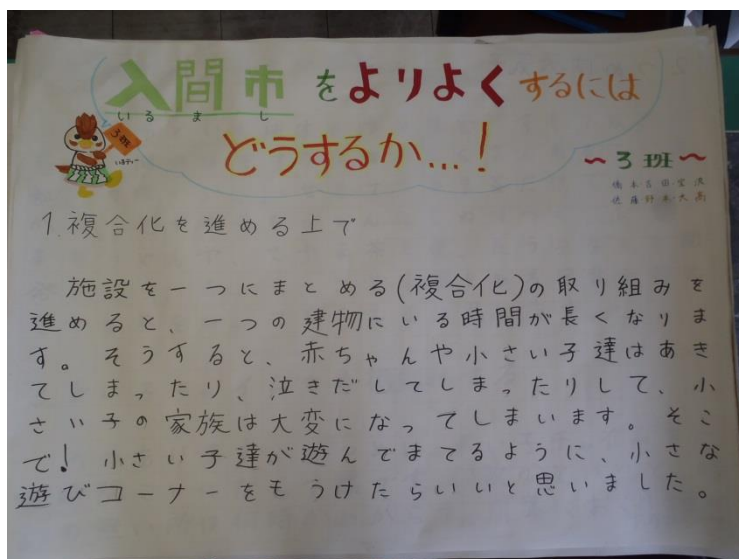 入間市をよりよくするには
いるまし
どうするか…！
3班
～3班～
1.複合化を進める上で
施設を一つにまとめる(複合化)の取り組みを
進めると、一つの建物にいる時間が長くなりま
す。そうすると、赤ちゃんや小さい子達はあき
てしまったり、泣きだしてしまったりして、小
さい子の家族は大変になってしまいます。そこ
で！小さい子達が遊んでまてるように、小さな
遊びコーナーをもうけたらいいと思いました。